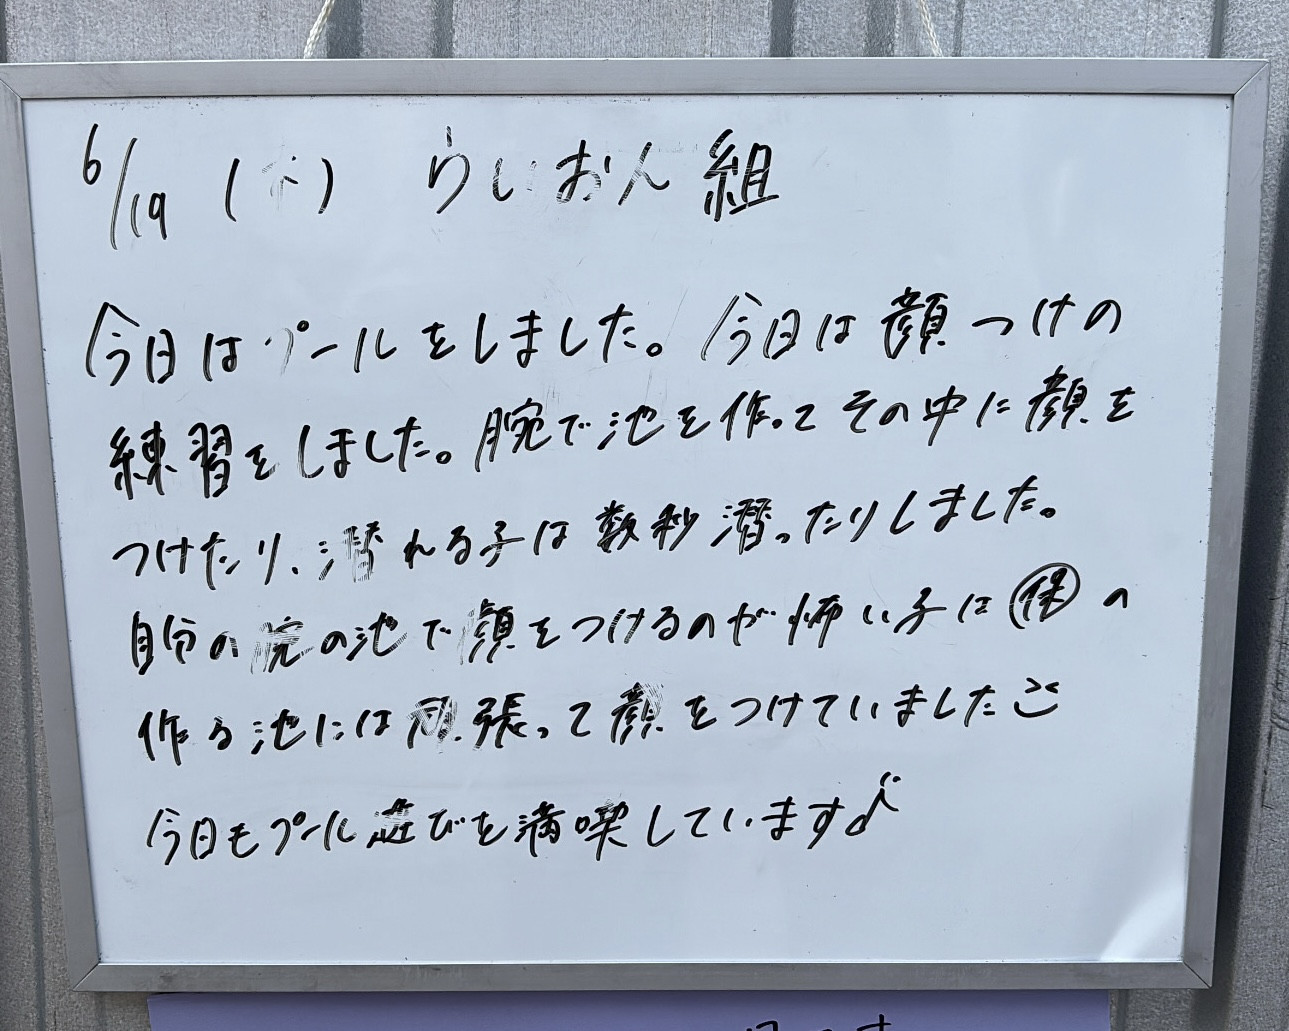 6/19 (木) らいおん組
今日はプールをしました。今日は顔つけの
練習をしました。腕で池を作ってその中に顔を
つけたり、潜れる子は数秒潜ったりしました。
自分の腕の池で顔をつけるのが怖い子は㋭の
作る池には頑張って顔をつけていました
今日もプール遊びを満喫しています♪